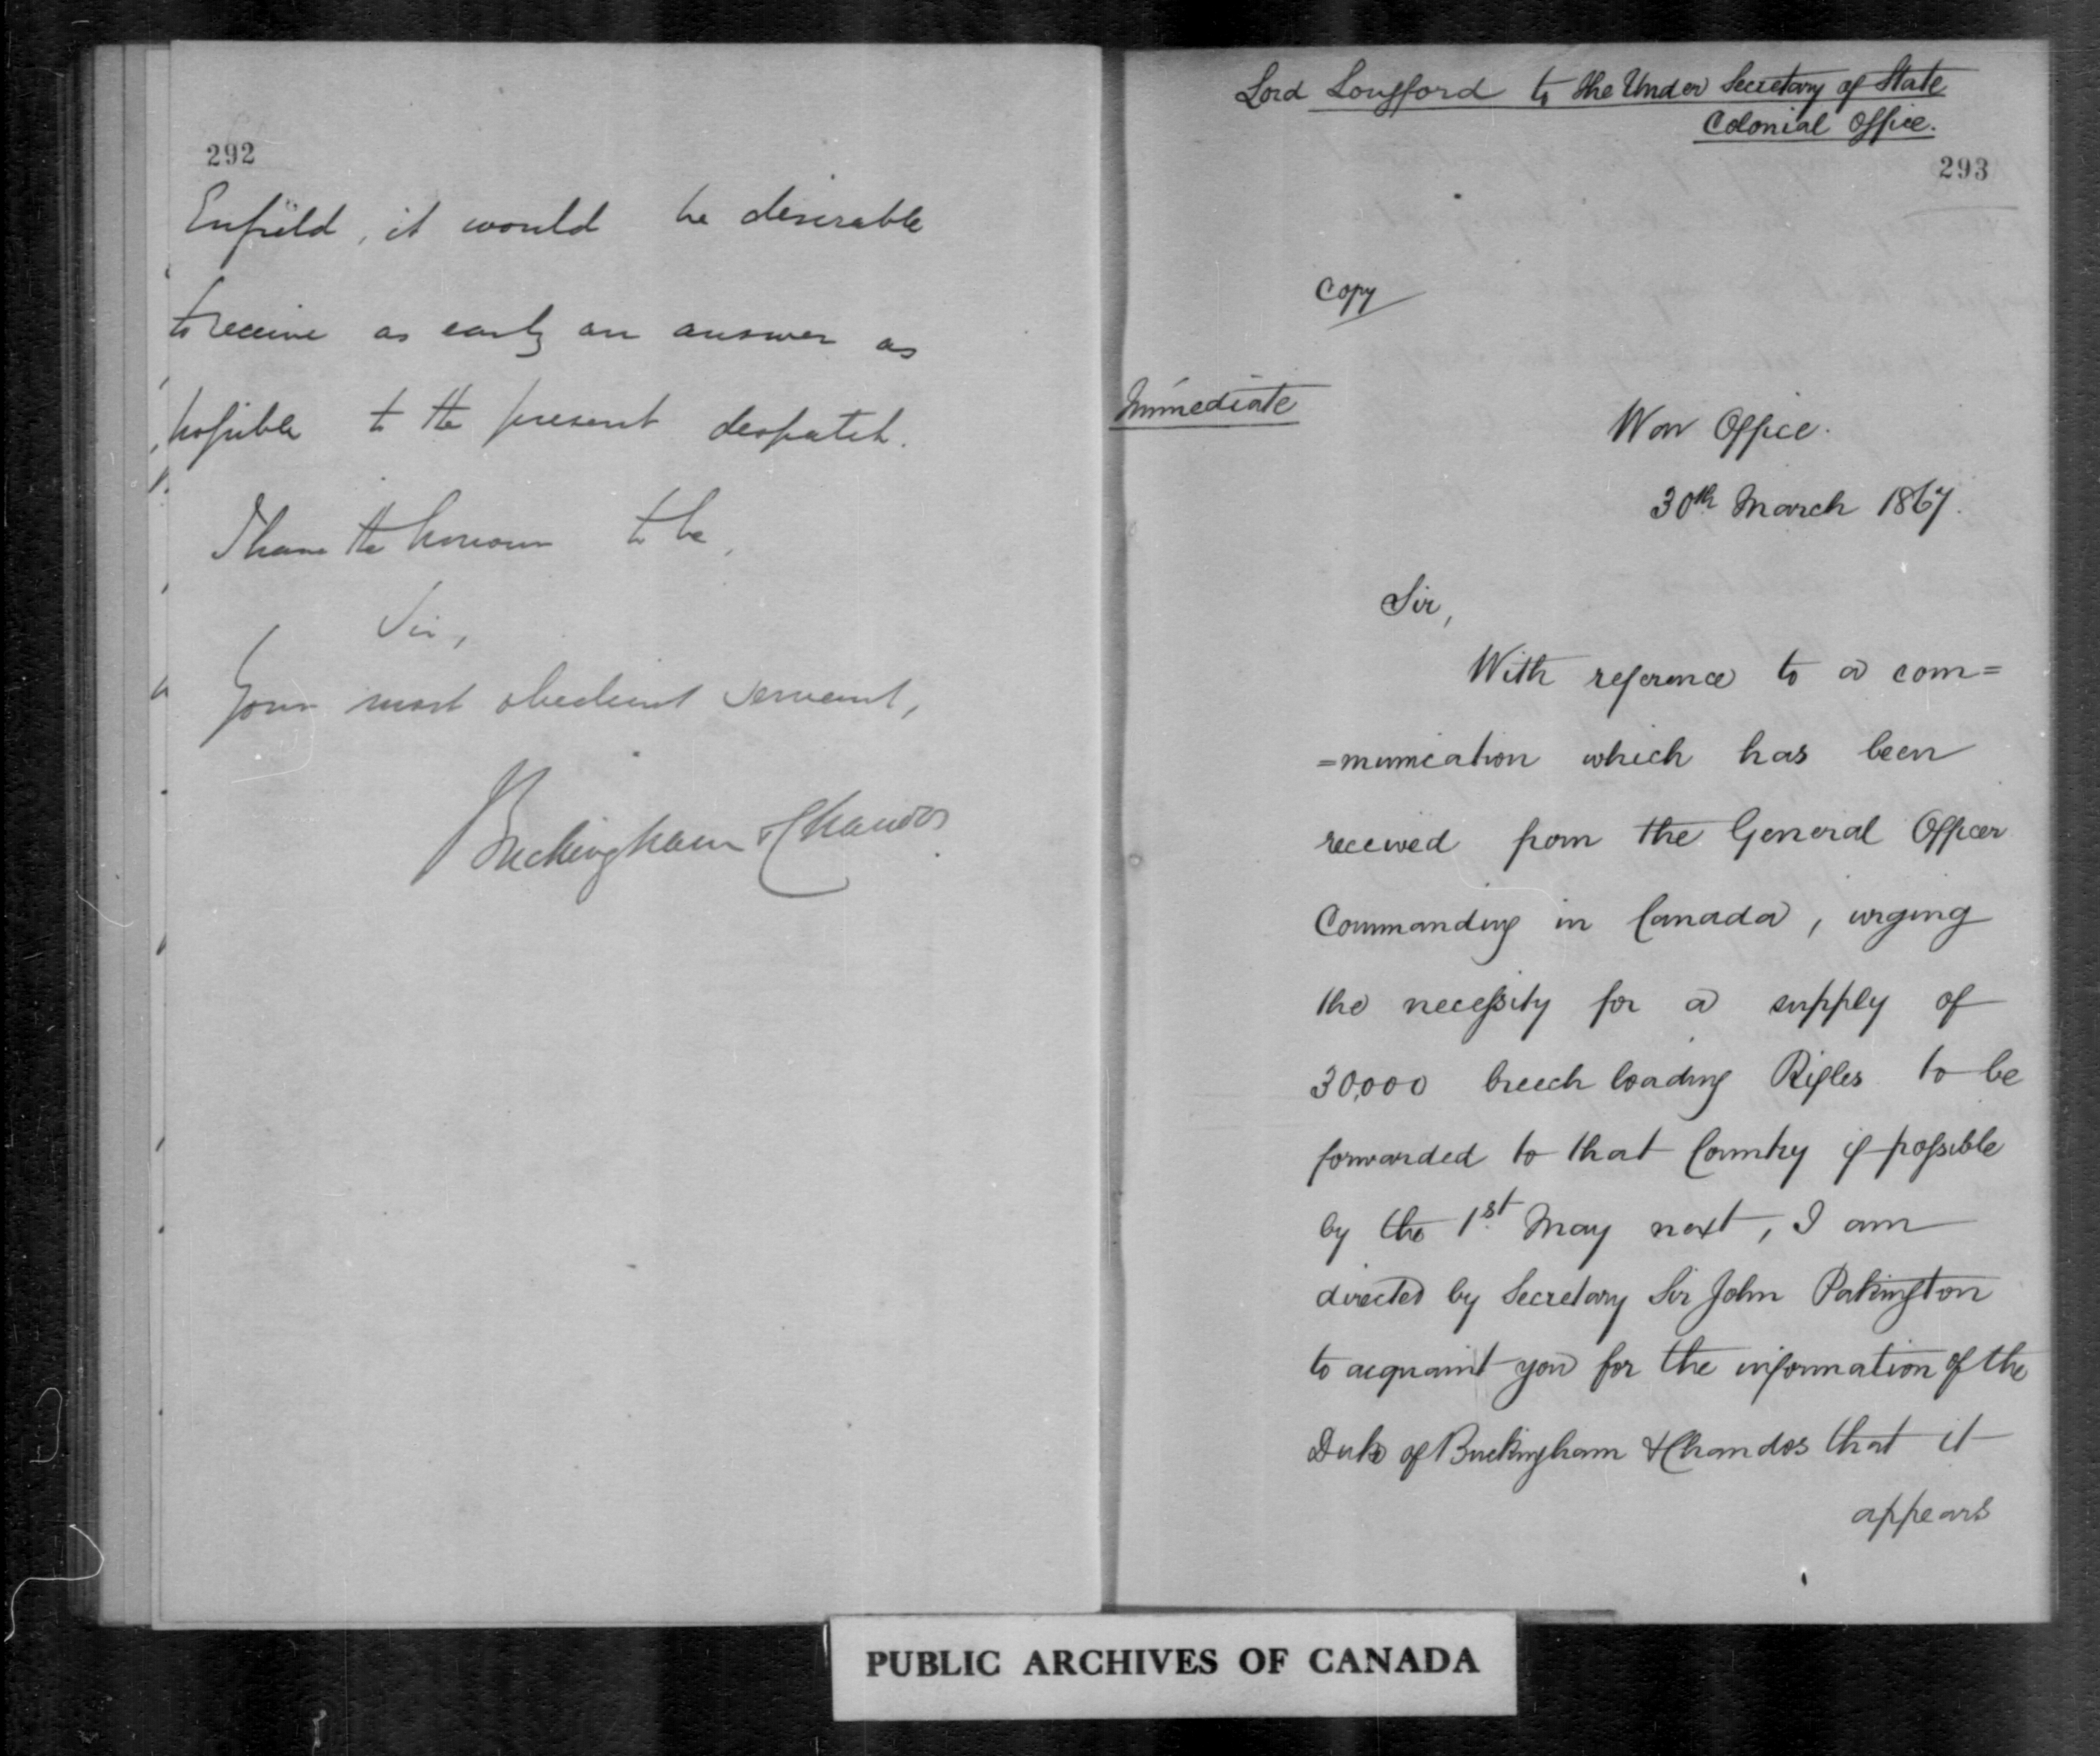 292
Enfield, it would be desirable
to receive as early an answer as
possible to the present despatch.
I have the honour to be,
Sir,
Your most obedient servant,
Buckingham & Chandos
Lord Longford to the Under Secretary of State
Colonial Office.
293
Copy
Immediate
War Office.
30th March 1867.
Sir,
With reference to a com=
=munication which has been
received from the General Officer
Commanding in Canada, urging
the necessity for a supply of
30,000 breech loading Rifles to be
forwarded to that Country if possible
by the 1st May next, I am
directed by Secretary Sir John Pakington
to acquaint you for the information of the
Duke of Buckingham & Chandos that it
appears
PUBLIC ARCHIVES OF CANADA